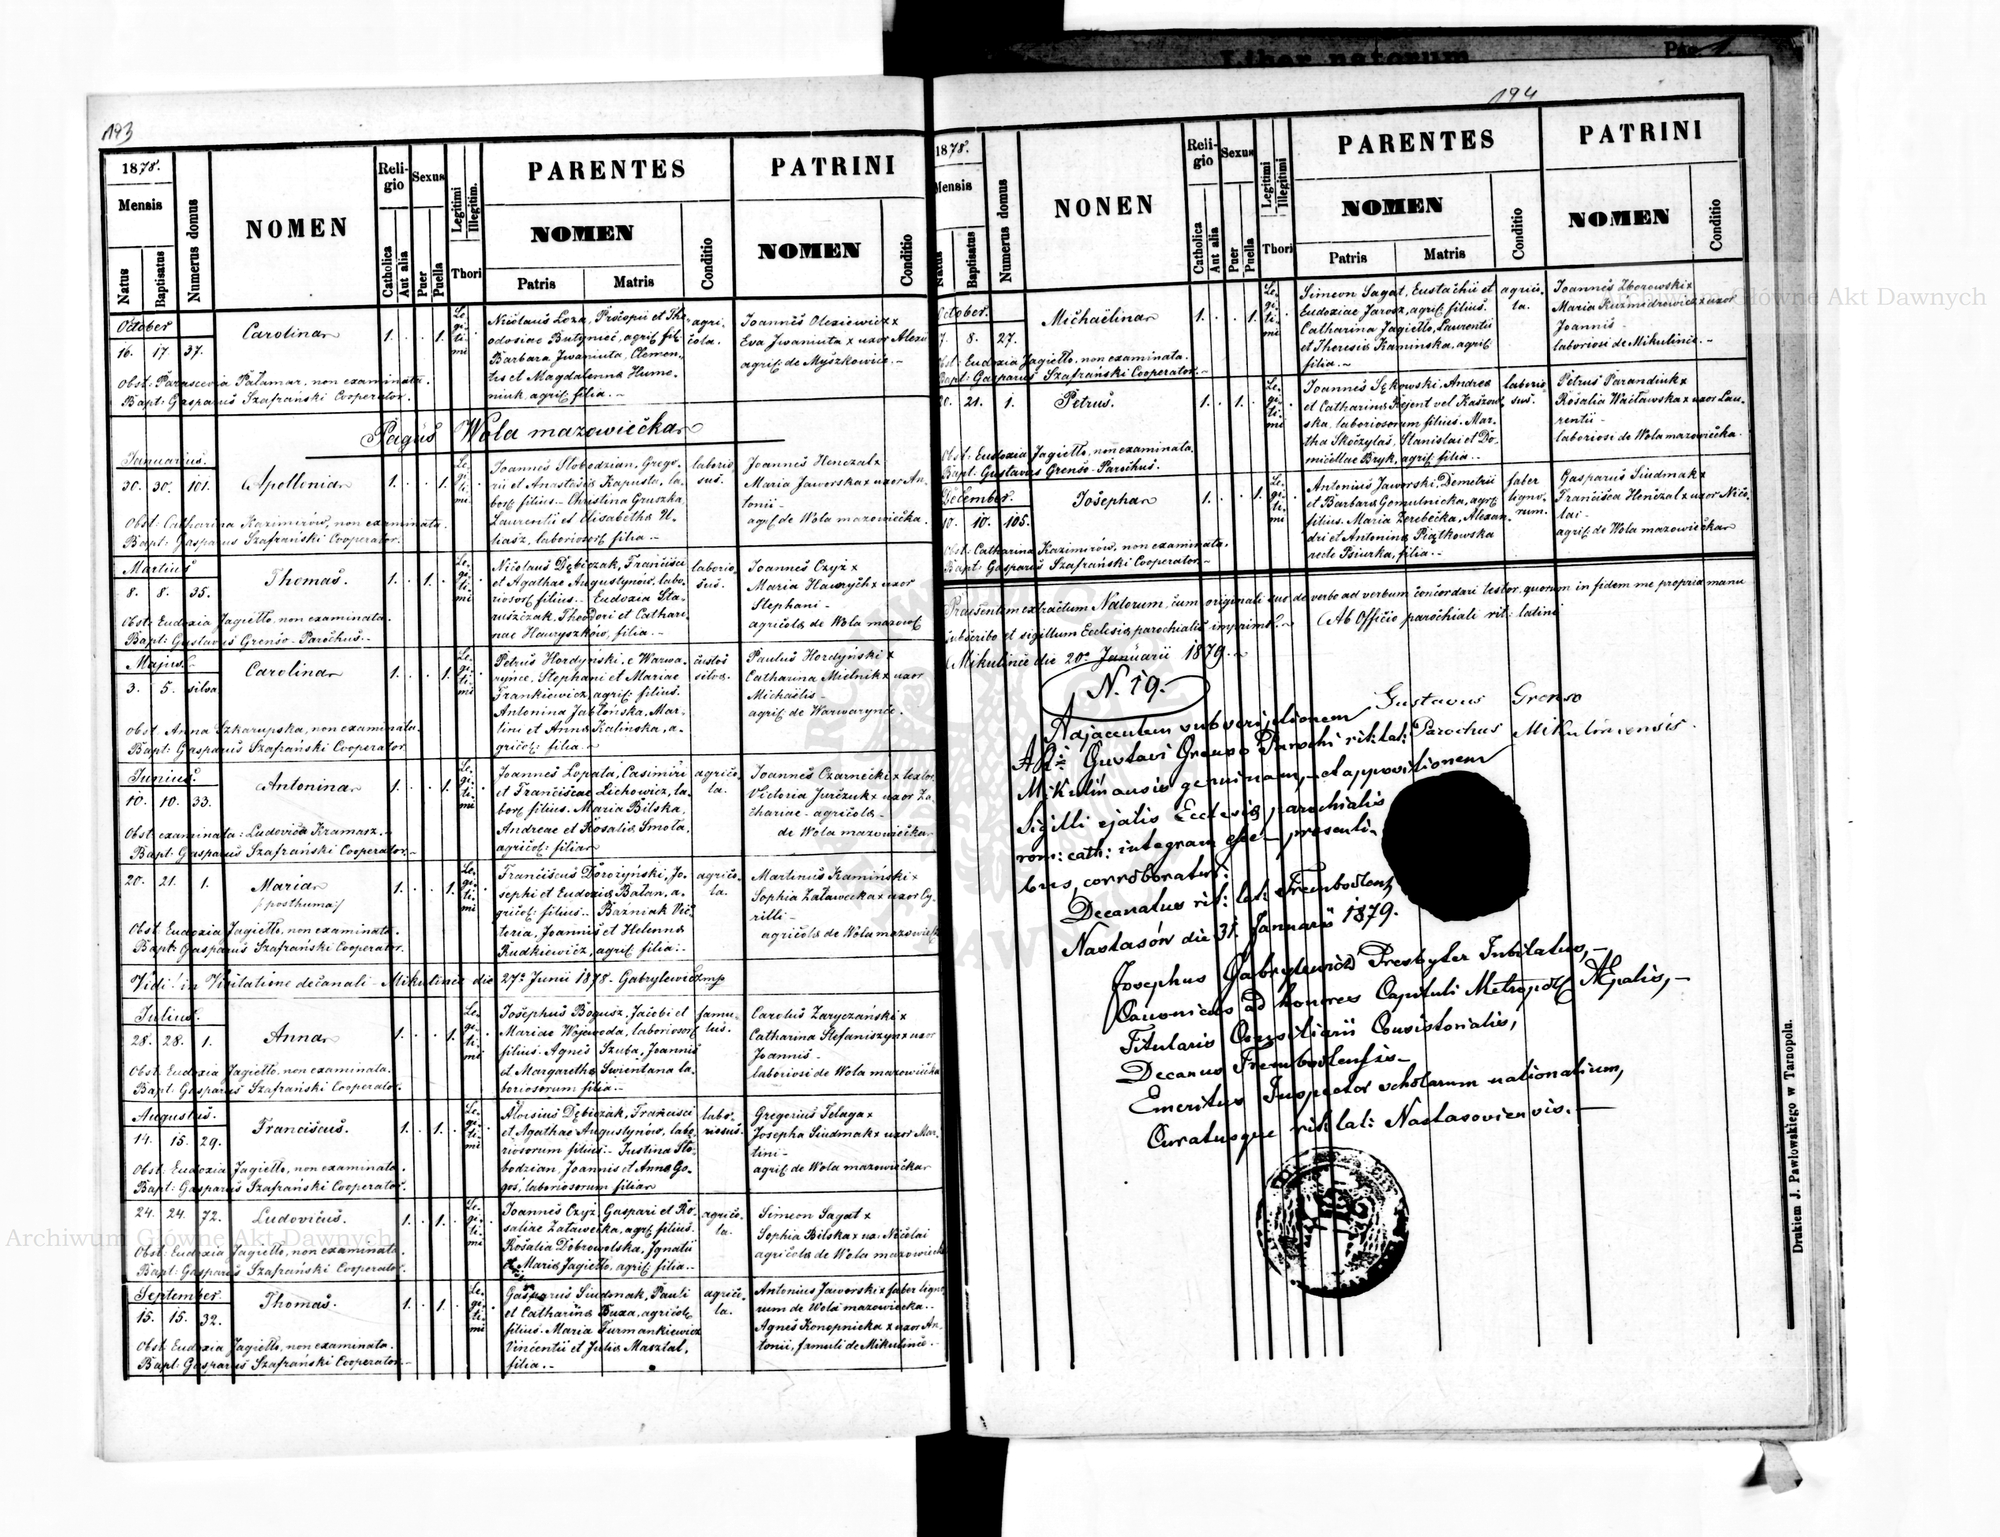 193
1878.
Mensis
Natus
Baptisatus
Numerus domus
NOMEN
Religio
Catholica
Aut alia
Sexus
Puer
Puella
Legitimi
Illegitim.
Thori
PARENTES
NOMEN
Patris
Matris
Conditio
PATRINI
NOMEN
Conditio
October
16. 17. 37.
Carolina
1. 1.
Legitimi
Nicolaus Loza, Procopii et Theodosiae Butyniec, agric. fil.
Barbara Iwaniuta, Clementis et Magdalena Humeniuk, agric. filia.
agricola.
Joannes Olexiewicz x
Eva Iwaniuta x uxor Alexii
agric. de Myszkowice.
Obst: Parascevia Patamar, non examinata.
Bapt: Gasparus Szafrański Cooperator.
Pagus Wola mazowiecka
Januarius.
30. 30. 101.
Apollonia
1. 1.
Legitimi
Joannes Slobodzian, Gregorii et Anastasia Kapusta, labor. filius. Christina Gruszka,
Laurentii et Elisabetha
laborios. filia
laboriosus.
Joannes Henczal x
Maria Jaworska x uxor Antonii
agric. de Wola mazowiecka.
Obst. Catharina Kazimirów, non examinata.
Bapt: Gasparus Szafrański Cooperator.
Martius
8. 8. 35.
Thomas.
1. 1.
Legitimi
Nicolaus Dębiczak, Francisci et Agathae Augustynów, laborios. filius. Eudoxia Staruszczak, Theodori et Catharinae Hawryszków, filia.
laboriosus.
Joannes Czyż x
Maria Hawrych x uxor
Stephani
agricola de Wola mazow.
Obst: Eudoxia Jagiełło, non examinata.
Bapt: Gustavus Grenso Parochus.
Majus.
3. 5. silva
Carolina
1. 1.
Legitimi
Petrus Hordyński e Warwarynce, Stephani et Mariae Frankiewicz, agric. filius.
Antonina Jabłońska, Martini et Anna Kalinska, agricol: filia
custos silvae.
Paulus Hordyński x
Catharina Mielnik x uxor
Michaelis
agric. de Warwarynce.
Obst. Anna Szkarupska, non examinata.
Bapt: Gasparus Szafrański Cooperator
Junius.
10. 10. 33.
Antonina
1. 1.
Legitimi
Joannes Lopata, Casimiri et Franciscae Lichowicz, labor. filius. Maria Bilska,
Andreae et Rosalia Smoła, agricol: filia
agricola.
Joannes Czarnecki x textor
Victoria Jurczuk x uxor Zachariae agricola
de Wola mazowiecka
Obst. examinata: Ludovica Kramarz.
Bapt: Gasparus Szafrański Cooperator.
20. 21. 1.
Maria
/:posthuma:/
1. 1.
Legitimi
Franciscus Dorożyński, Josephi et Eudoxia Bałan, agricol: filius. Bazniak Victoria, Joannis et Helenna Rudkiewicz, agric. filia.
agricola.
Martinus Kaminski x
Sophia Załawecka x uxor Cyrilli
agricola de Wola mazowiecka
Obst. Eudoxia Jagiełło, non examinata.
Bapt: Gasparus Szafrański Cooperator.
Vidi in Visitatione decanali Mikulince die 27a Junii 1878. Gabrylewicz mp
Julius.
28. 28. 1.
Anna
1. 1.
Legitimi
Josephus Bogusz, Jacobi et Mariae Wojewoda, laborios. filius. Agnes Szuba, Joannis et Margaretha Swientana laboriosorum filia.
famulus.
Carolus Zaryczański x
Catharina Stefaniszyn x uxor
Joannis
laboriosi de Wola mazowiecka
Obst: Eudoxia Jagiełło, non examinata.
Bapt. Gasparus Szafrański Cooperator.
Augustus.
14. 15. 29.
Franciscus.
1. 1.
Legitimi
Aloisius Dębiczak, Francisci et Agathae Augustynów, laboriosorum filius. Justina Slobodzian, Joannis et Anna Gogoś, laboriosorum filia
laboriosus.
Gregorius Telaga x
Josepha Siudmak x uxor Martini
agric. de Wola mazowiecka
Obst: Eudoxia Jagiełło, non examinata.
Bapt: Gasparus Szafrański Cooperator.
24. 24. 72.
Ludovicus.
1. 1.
Legitimi
Joannes Czyż, Gaspari et Rosaliae Załawecka, agric. filius.
Rosalia Dobrowolska, Ignatii et Maria Jagiełło, agric. filia.
agricola.
Simeon Sagat x
Sophia Bilska x ux: Nicolai
agricola de Wola mazowiecka
Obst: Eudoxia Jagiełło, non examinata.
Bapt: Gasparus Szafrański Cooperator.
September.
15. 15. 32.
Thomas.
1. 1.
Legitimi
Gasparus Siudmak, Pauli et Catharina Buza, agricol. filius. Maria Furmankiewicz Vincentii et Julia Masztal, filia.
agricola.
Antonius Jaworski x faber lignorum de Wola mazowiecka.
Agnes Konopnicka x uxor Antonii, famuli de Mikulince.
Obst. Eudoxia Jagiełło, non examinata.
Bapt: Gasparus Szafrański Cooperator
Liber natorum
Pag. 1.
194
1878.
Mensis
Natus
Baptisatus
Numerus domus
NONEN
Religio
Catholica
Aut alia
Sexus
Puer
Puella
Legitimi
Illegitimi
Thori
PARENTES
NOMEN
Patris
Matris
Conditio
PATRINI
NOMEN
Conditio
October.
7. 8. 27.
Michaelina
1. 1.
Legitimi
Simeon Sagat, Eustachii et Eudoxiae Jarosz, agric. filius.
Catharina Jagiełło, Laurentii et Theresia Kaminska, agric. filia.
agricola.
Joannes Zborowski x
Maria Kuzmdrowicz x uxor
Joannis
laboriosi de Mikulince.
Obst: Eudoxia Jagiełło, non examinata.
Bapt: Gasparus Szafrański Cooperator.
20. 21. 1.
Petrus.
1. 1.
Legitimi
Joannes Sękowski, Andrea et Catharina Rejent vel Kaszowska, laboriosorum filius. Martha Skoczylas, Stanislai et Domicellae Bryk, agric. filia.
laboriosus.
Petrus Parandiuk x
Rosalia Wacławska x uxor Laurentii
laboriosi de Wola mazowiecka.
Obst: Eudoxia Jagiełło, non examinata.
Bapt: Gustavus Grenso Parochus.
December.
10. 10. 105.
Josepha
1. 1.
Legitimi
Antonius Jaworski, Demetrii et Barbara Gomulnicka, agric. filius. Maria Zerebecka, Alexandri et Antonina Piątkowska recte Psiurka, filia.
faber lignorum.
Gasparus Siudmak x
Francisca Henczal x uxor Nicolai
agric. de Wola mazowiecka
Obst: Catharina Kazimirów, non examinata.
Bapt: Gasparus Szafrański Cooperator.
Praesentem extractum Natorum, cum originali suo de verbo ad verbum concordari testor, quorum in fidem me propria manu
subscribo et sigillum Ecclesia parochialis imprimo.
Ab Officio parochiali rit: latini
Mikulince die 20a Januarii 1879.
N. 19.
Gustavus Grenso
Parochus Mikulincensis.
Adjacentem subscriptionem
Gustavi Grenso Parochi rit: lat:
Mikulincensis genuinam, et appositionem
Sigilli ejatis Ecclesia parochialis
rom: cath: integram esse presentibus corroboratur.
Decanatus rit: lat: Trembowlens,
Nastasów die 31. Januarii 1879.
Josephus Gabrylewicz Presbyter Jubilatus,
Canonicus ad honores Capituli Metropol.
Titularis Consiliarii Consistorialis,
Decanus Trembowlensis
Emeritus Inspector scholarum nationalium,
Curatusque rit: lat: Nastasoviensis.
Drukiem J. Pawłowskiego w Tarnopolu.
Archiwum Główne Akt Dawnych
Archiwum Główne Akt Dawnych